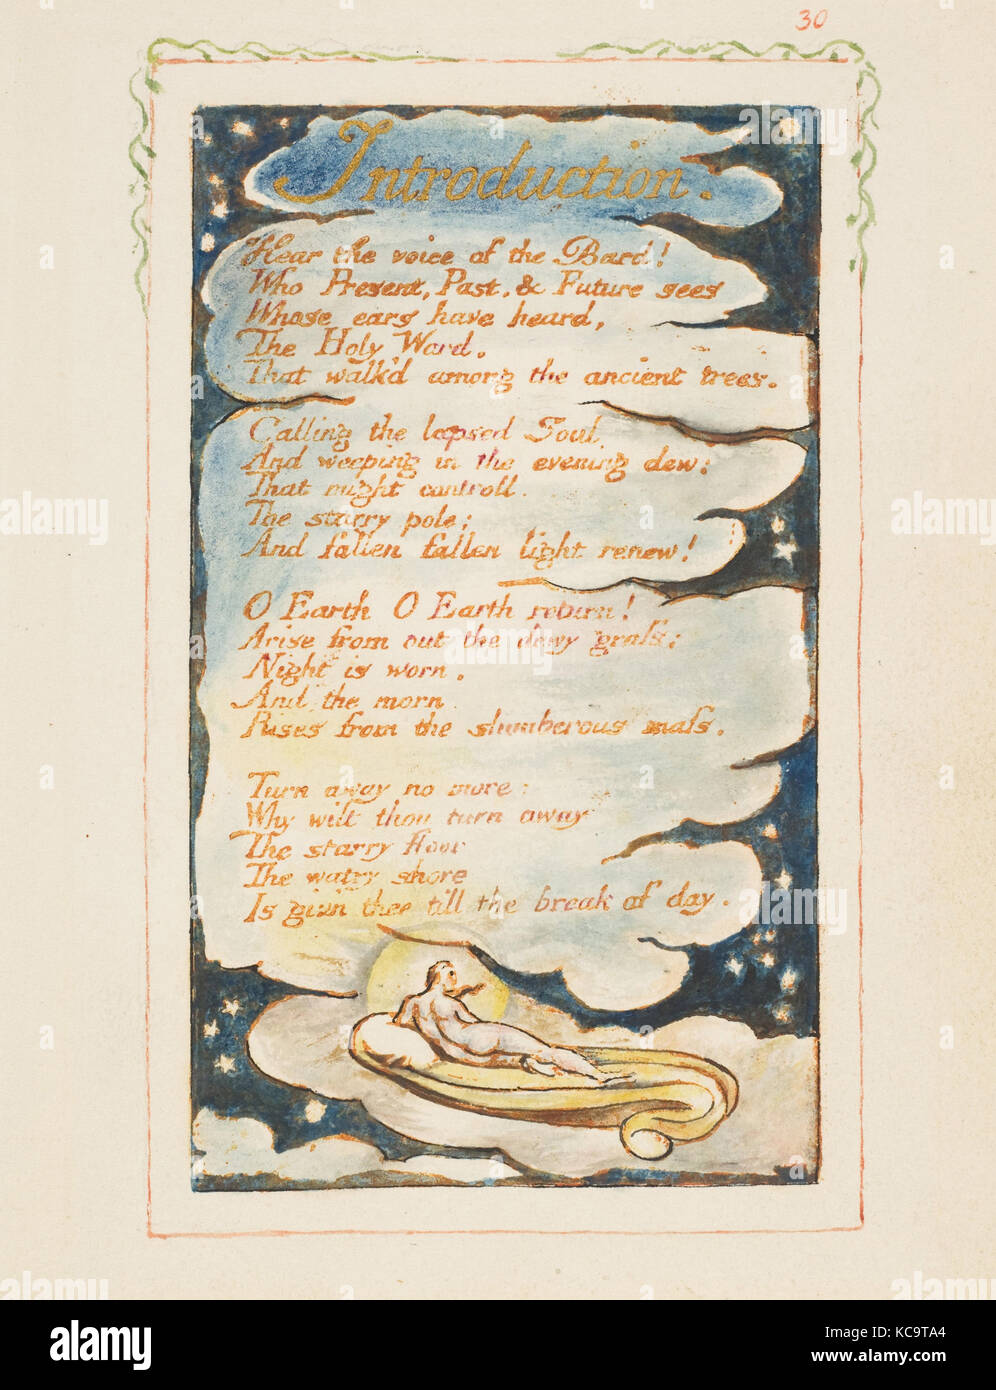 30
Introduction.
Hear the voice of the Bard!
Who Present, Past, & Future sees
Whose ears have heard,
The Holy Word,
That walk'd among the ancient trees.
Calling the lapsed Soul
And weeping in the evening dew:
That might controll.
The starry pole;
And fallen fallen light renew!
O Earth O Earth return!
Arise from out the dewy grass;
Night is worn,
And the morn
Rises from the slumberous mass.
Turn away no more:
Why wilt thou turn away
The starry floor
The watry shore
Is giv'n thee till the break of day.
alamy
alamy
Image ID: KC9TA4
www.alamy.com